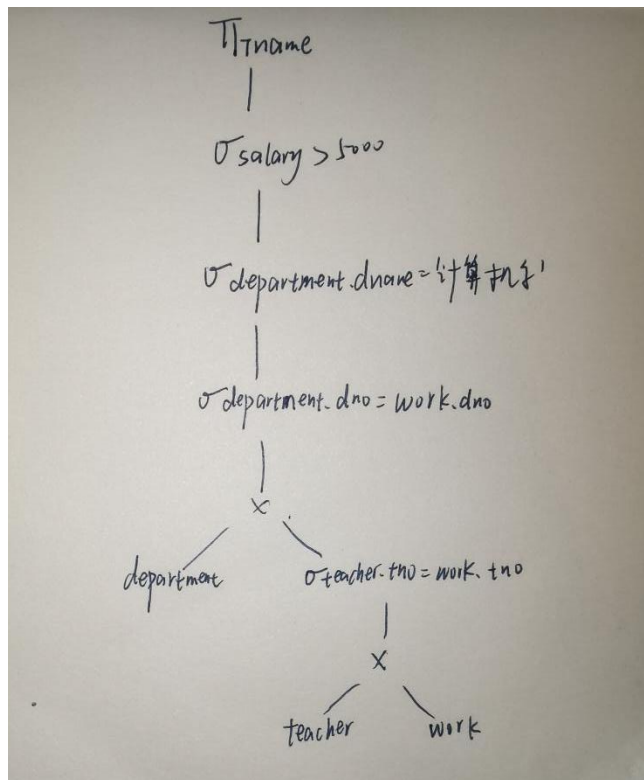 ΠTname
σ salary > 5000
σ department.dname = '计算机系'
σ department.dno = work.dno
×
department σ teacher.tno = work.tno
×
teacher work